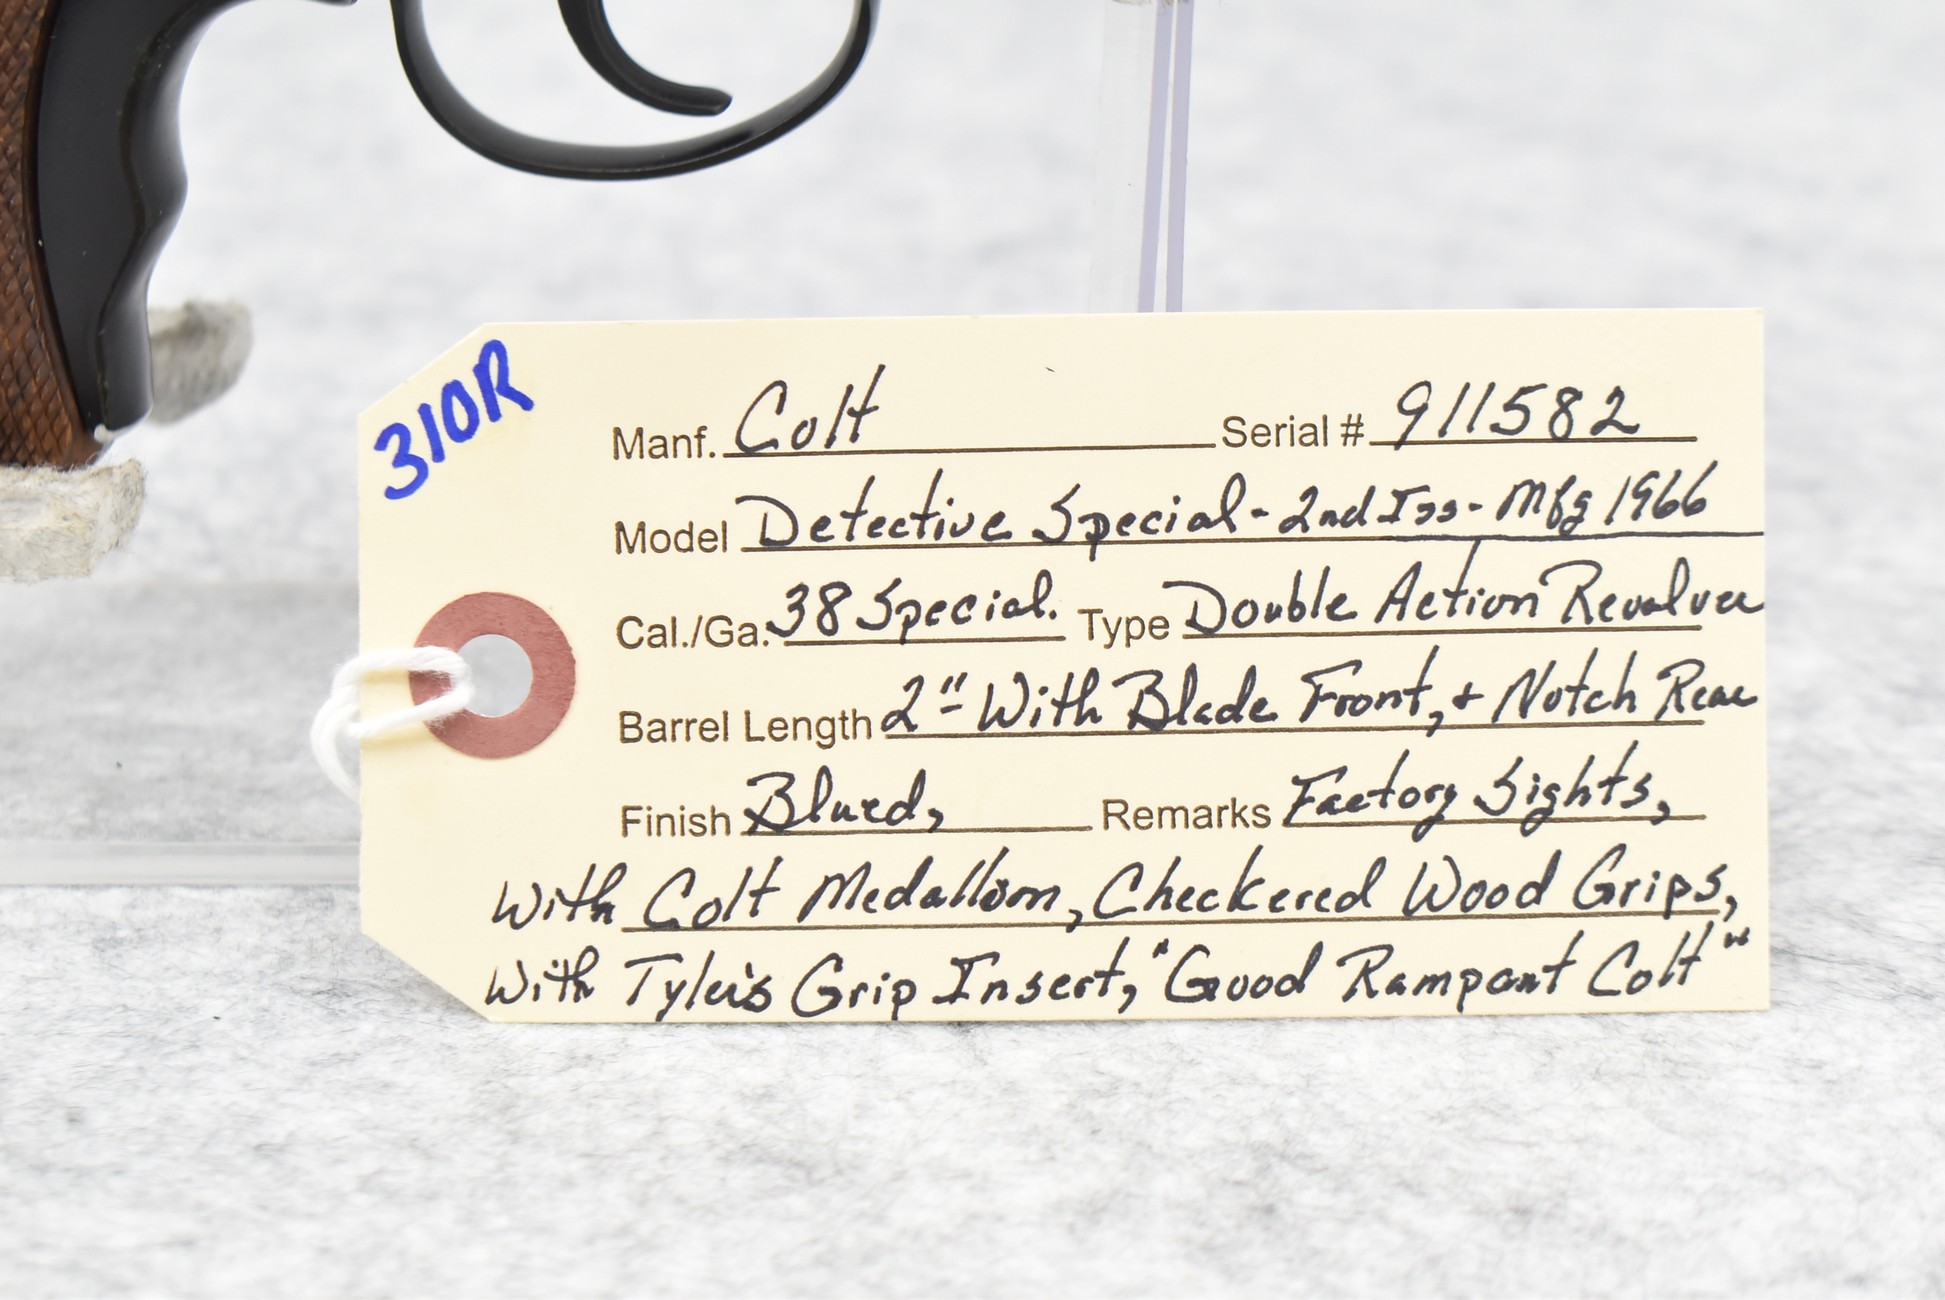 310R
Manf. Colt Serial # 911582
Model Detective Special - 2nd Iss - Mfg 1966
Cal./Ga. 38 Special. Type Double Action Revolver
Barrel Length 2" With Blade Front, + Notch Rear
Finish Blued, Remarks Factory Sights,
With Colt Medallion, Checkered Wood Grips,
With Tyler's Grip Insert, "Good Rampant Colt"